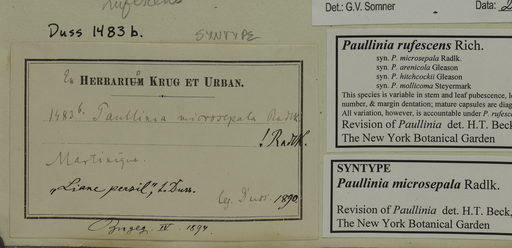 rufescens
Duss 1483 b.
SYNTYPE
Ex HERBARIUM KRUG ET URBAN.
1483b. Paullinia microsepala Radlk.
! Radlk.
Martinique
„Liane persil", t. Duss.
leg. Duss. 1890
IV. 1894.
Det.: G.V. Somner Data:
Paullinia rufescens Rich.
syn. P. microsepala Radlk.
syn. P. arenicola Gleason
syn. P. hitchcockii Gleason
syn. P. mollicoma Steyermark
This species is variable in stem and leaf pubescence, le
number, & margin dentation; mature capsules are diag
All variation, however, is accountable under P. rufesce
Revision of Paullinia det. H.T. Beck
The New York Botanical Garden
SYNTYPE
Paullinia microsepala Radlk.
Revision of Paullinia det. H.T. Beck,
The New York Botanical Garden